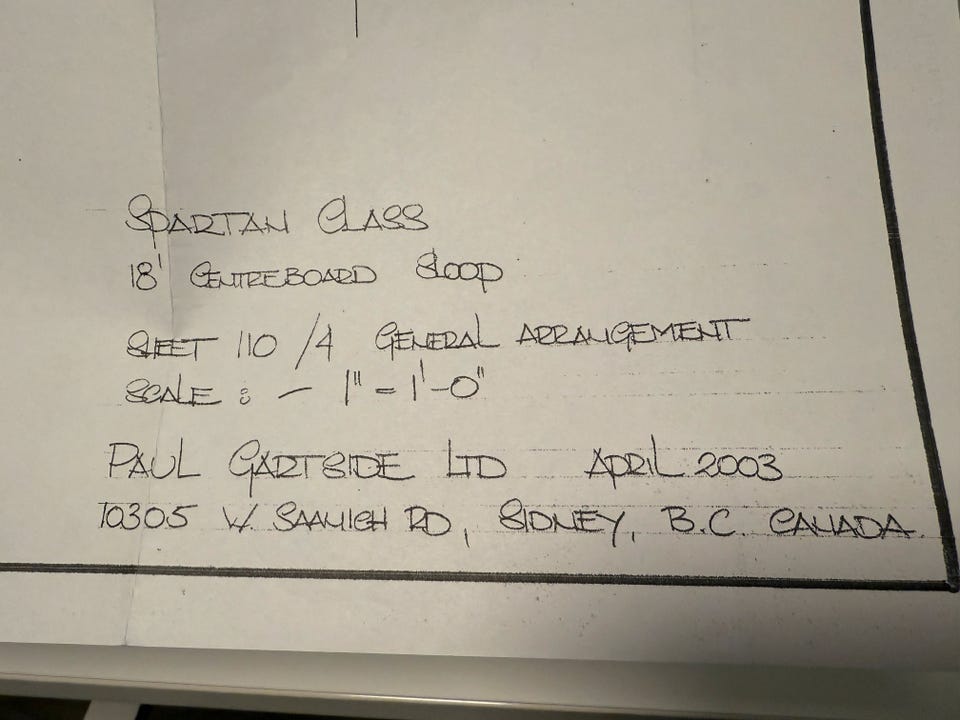 SPARTAN CLASS
18' CENTREBOARD SLOOP
SHEET 110 /4 GENERAL ARRANGEMENT
SCALE : – 1" = 1'-0"
PAUL GARTSIDE LTD APRIL 2003
10305 W. SAANICH RD, SIDNEY, B.C. CANADA.